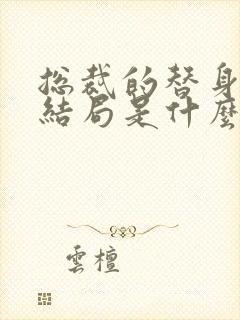 總裁的替身
結局是什麼
雲檀